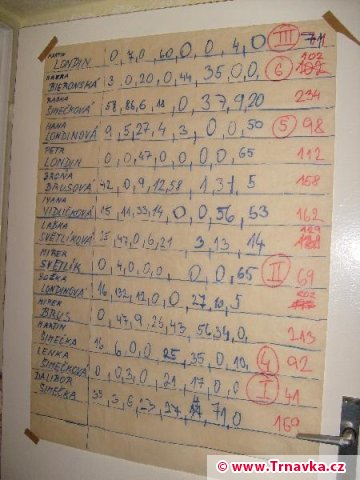 MARTIN
LONDIN 0,7,0, 60,0,0, 4,0 III 71
102
BIGRONSKÁ 3 0,20,0,44, 35,0,0, 6
RADKA
ŠIMEČKOVÁ 58,86,6, 0,37,9,20 234
HANA
LONDINOVÁ 9,5,27,4,3,0,0,50 5 98
PETR
LONDIN 0,0,47,0,0,0,0,65 112
BRUSOVÁ 42,0,9,12,58 158
IVANA
VIDLIČKOVÁ 15,11, ,14,0,0,56,53 162
LAĎKA 129
SVĚTLÍKOVÁ ,47,0,6,21 3,13, 14
MIREK
SVĚTLÍK 0,4,0,0,0 0,0,65 II 69
BOŽKA 202
LONDINOVÁ 16,132,12,0,0,27,10,5
MIREK
BRUS 0,47,9,25,43 56,34,0, 213
MARTIN
ŠIMEČKA 16 6,0,0 25,35,0,10, 4 92
LENKA
ŠIMEČKOVÁ 0,0,3,0,21,17,0,0 I 41
DALIBOR
ŠIMEČKA 35,3,6, ,0 169
© www.Trnavka.cz